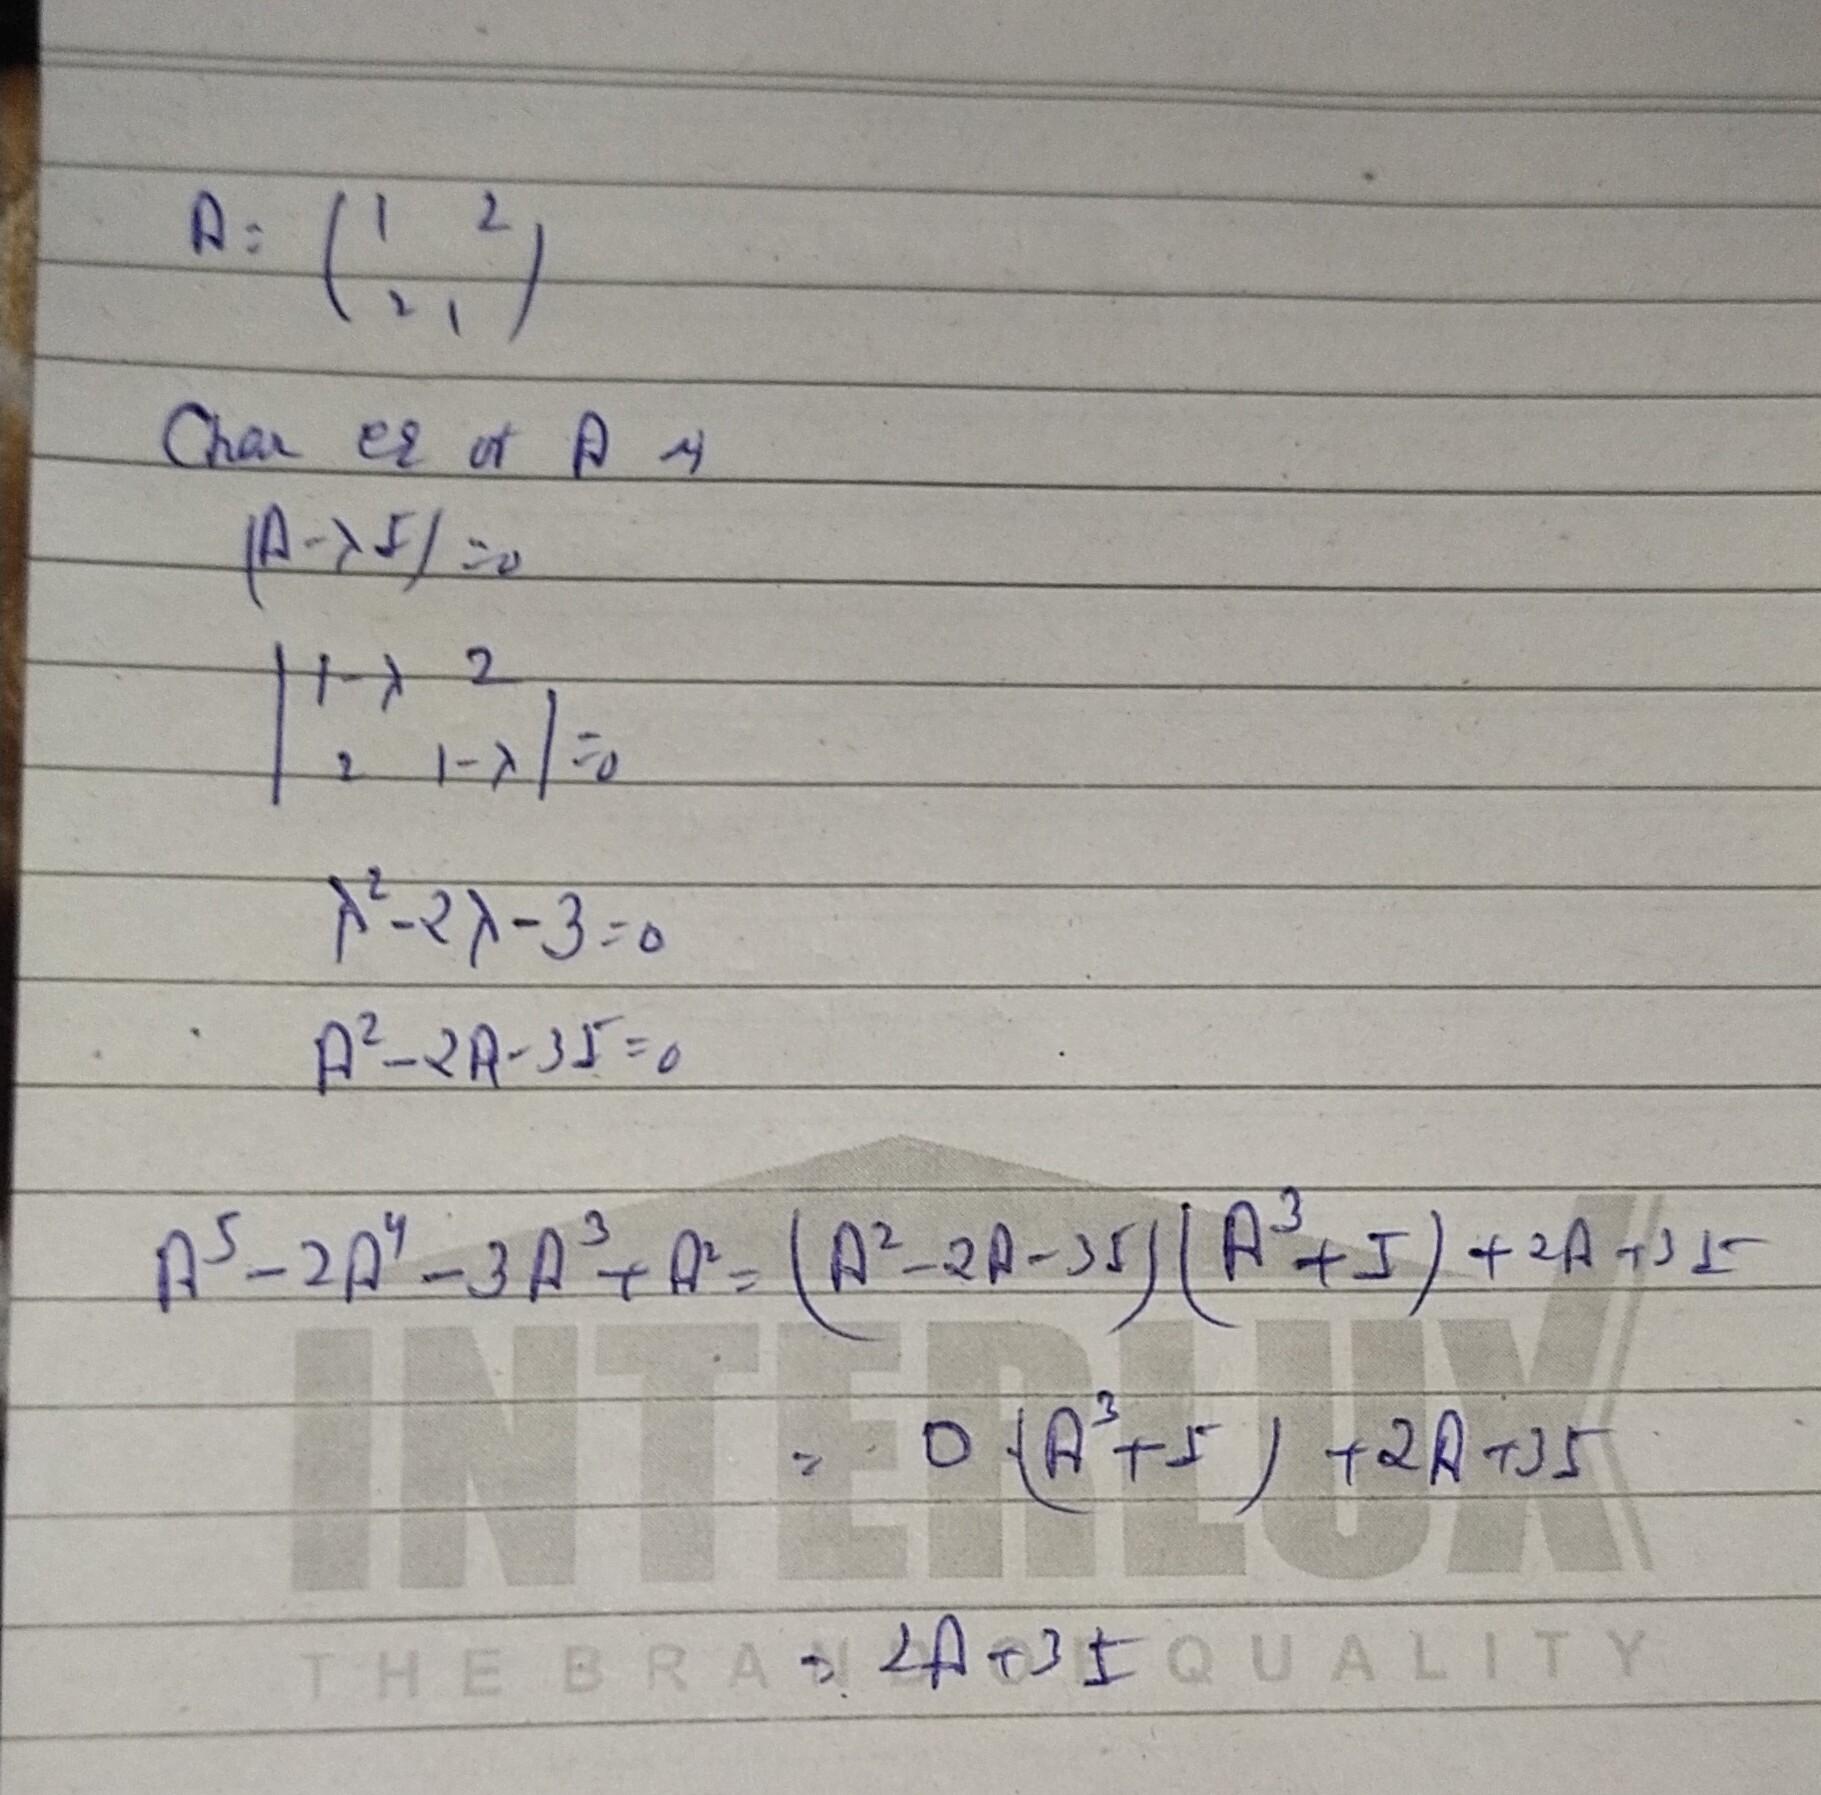 A = ( 1 2
2 1 )
Char eq of A is
|A-λI| = 0
| 1-λ 2
2 1-λ | = 0
λ²-2λ-3=0
A²-2A-3I=0
A⁵-2A⁴-3A³+A² = (A²-2A-3I)(A³+I)+2A+3I
= 0 (A³+I) +2A+3I
= 2A+3I
INTERLUX
THE BRAND OF QUALITY